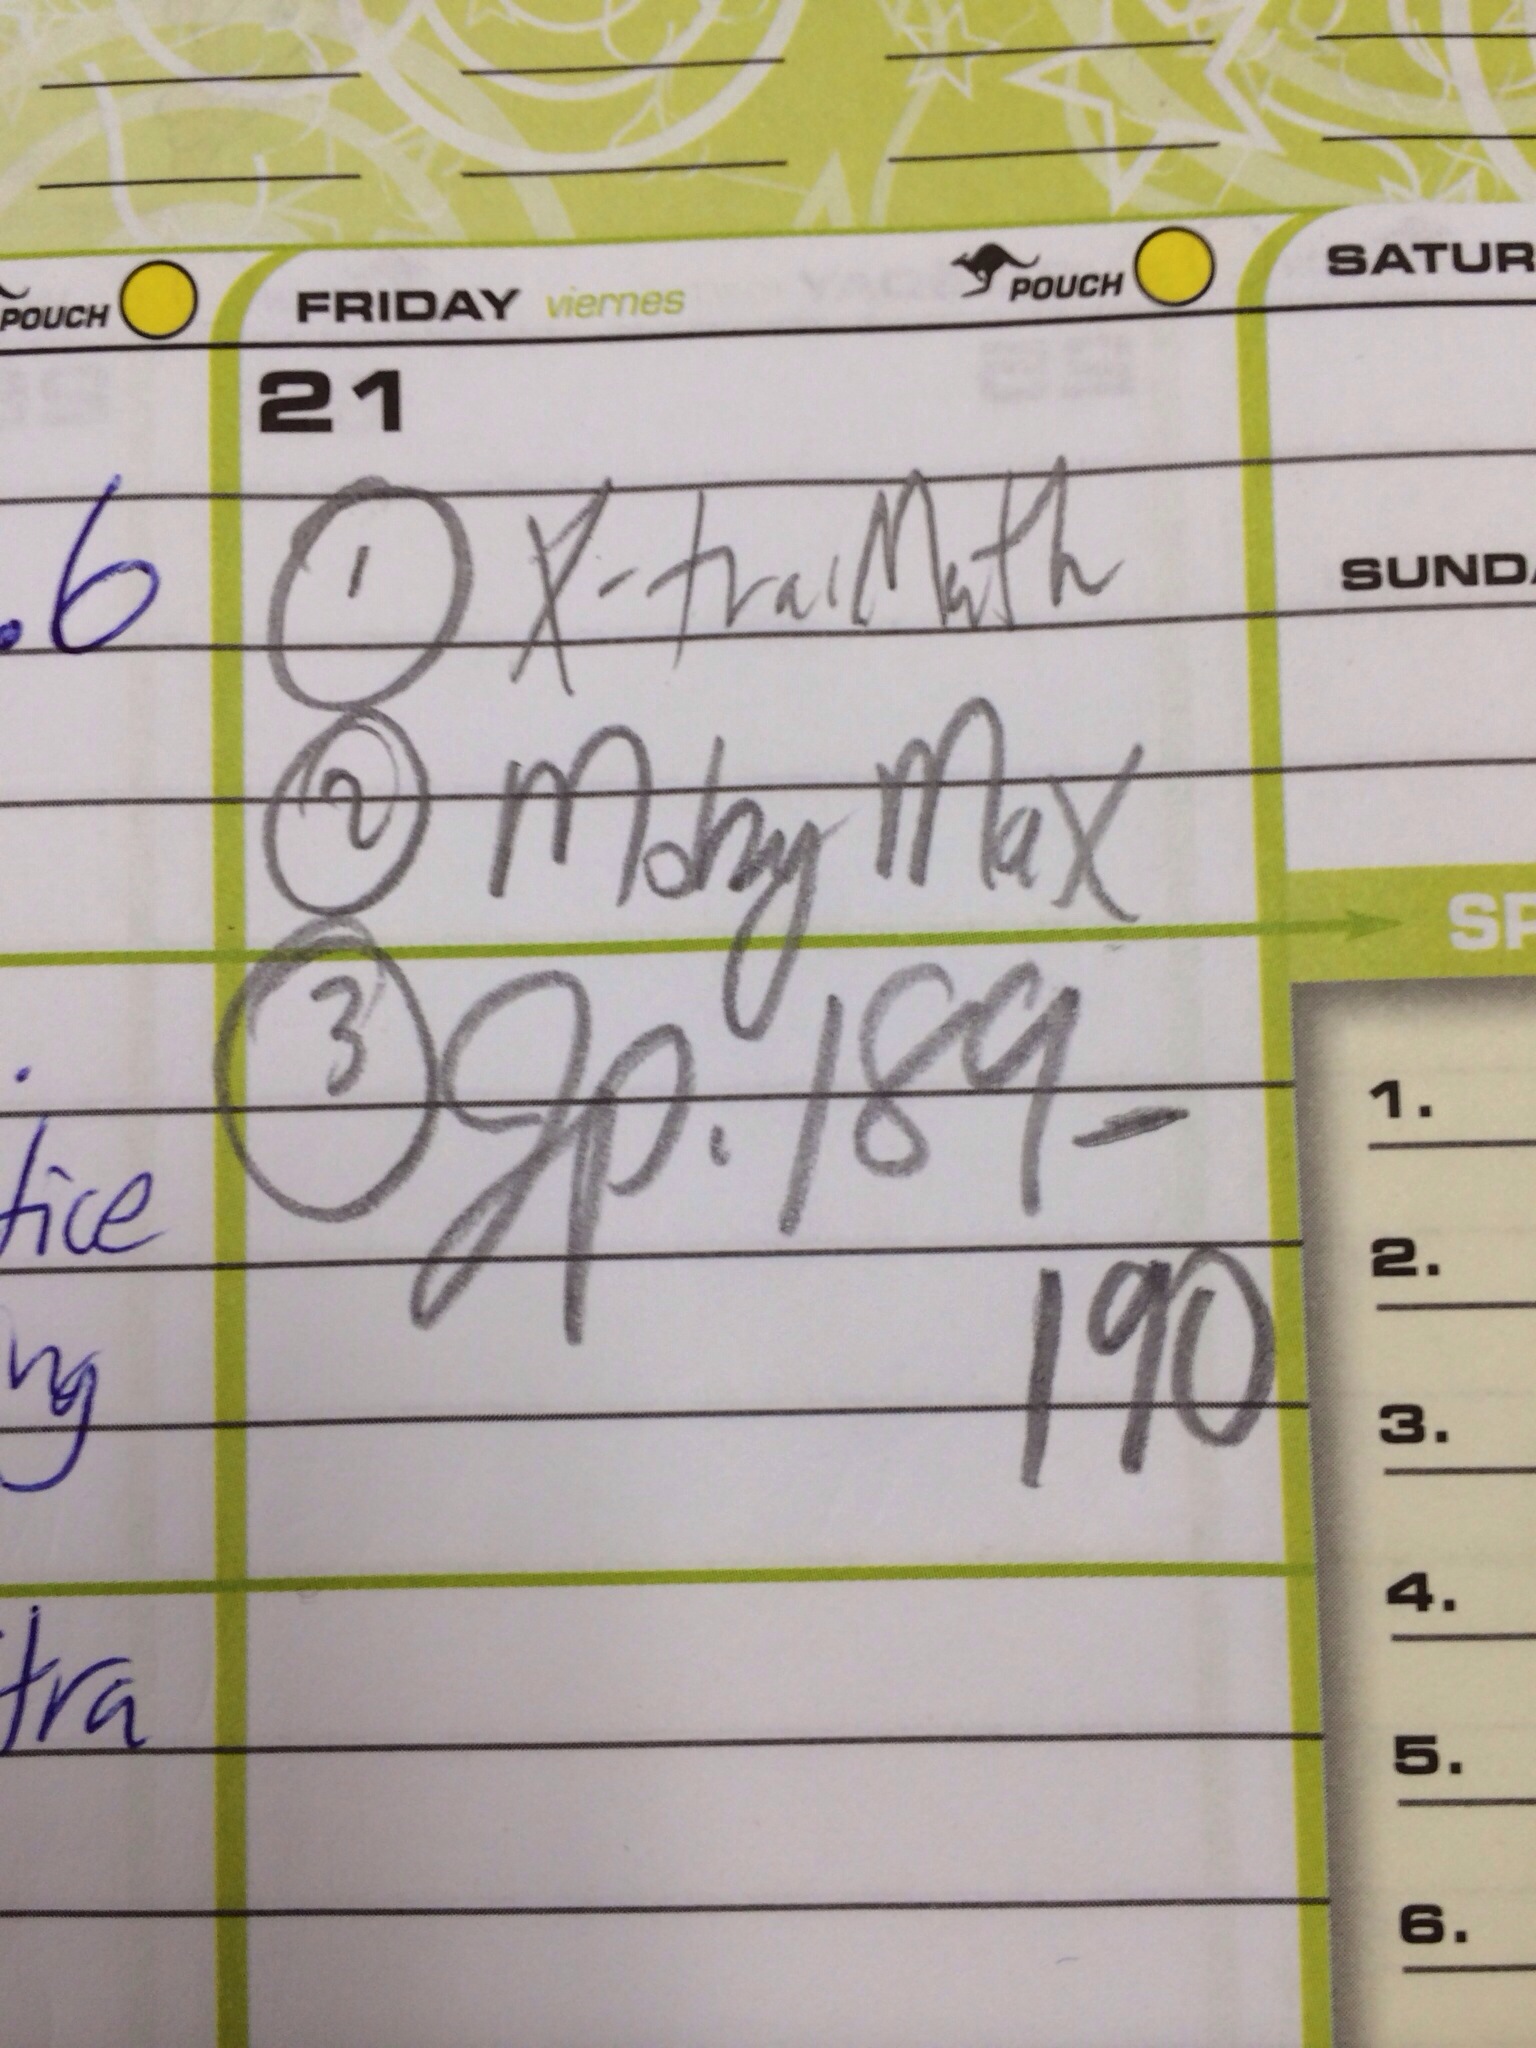 POUCH
FRIDAY viernes POUCH
SATUR
21
.6
① X-tra Math
SUNDA
② Moby Max
SP
③ Jp. 189-
190
1.
tice
2.
ng
3.
4.
tra
5.
6.